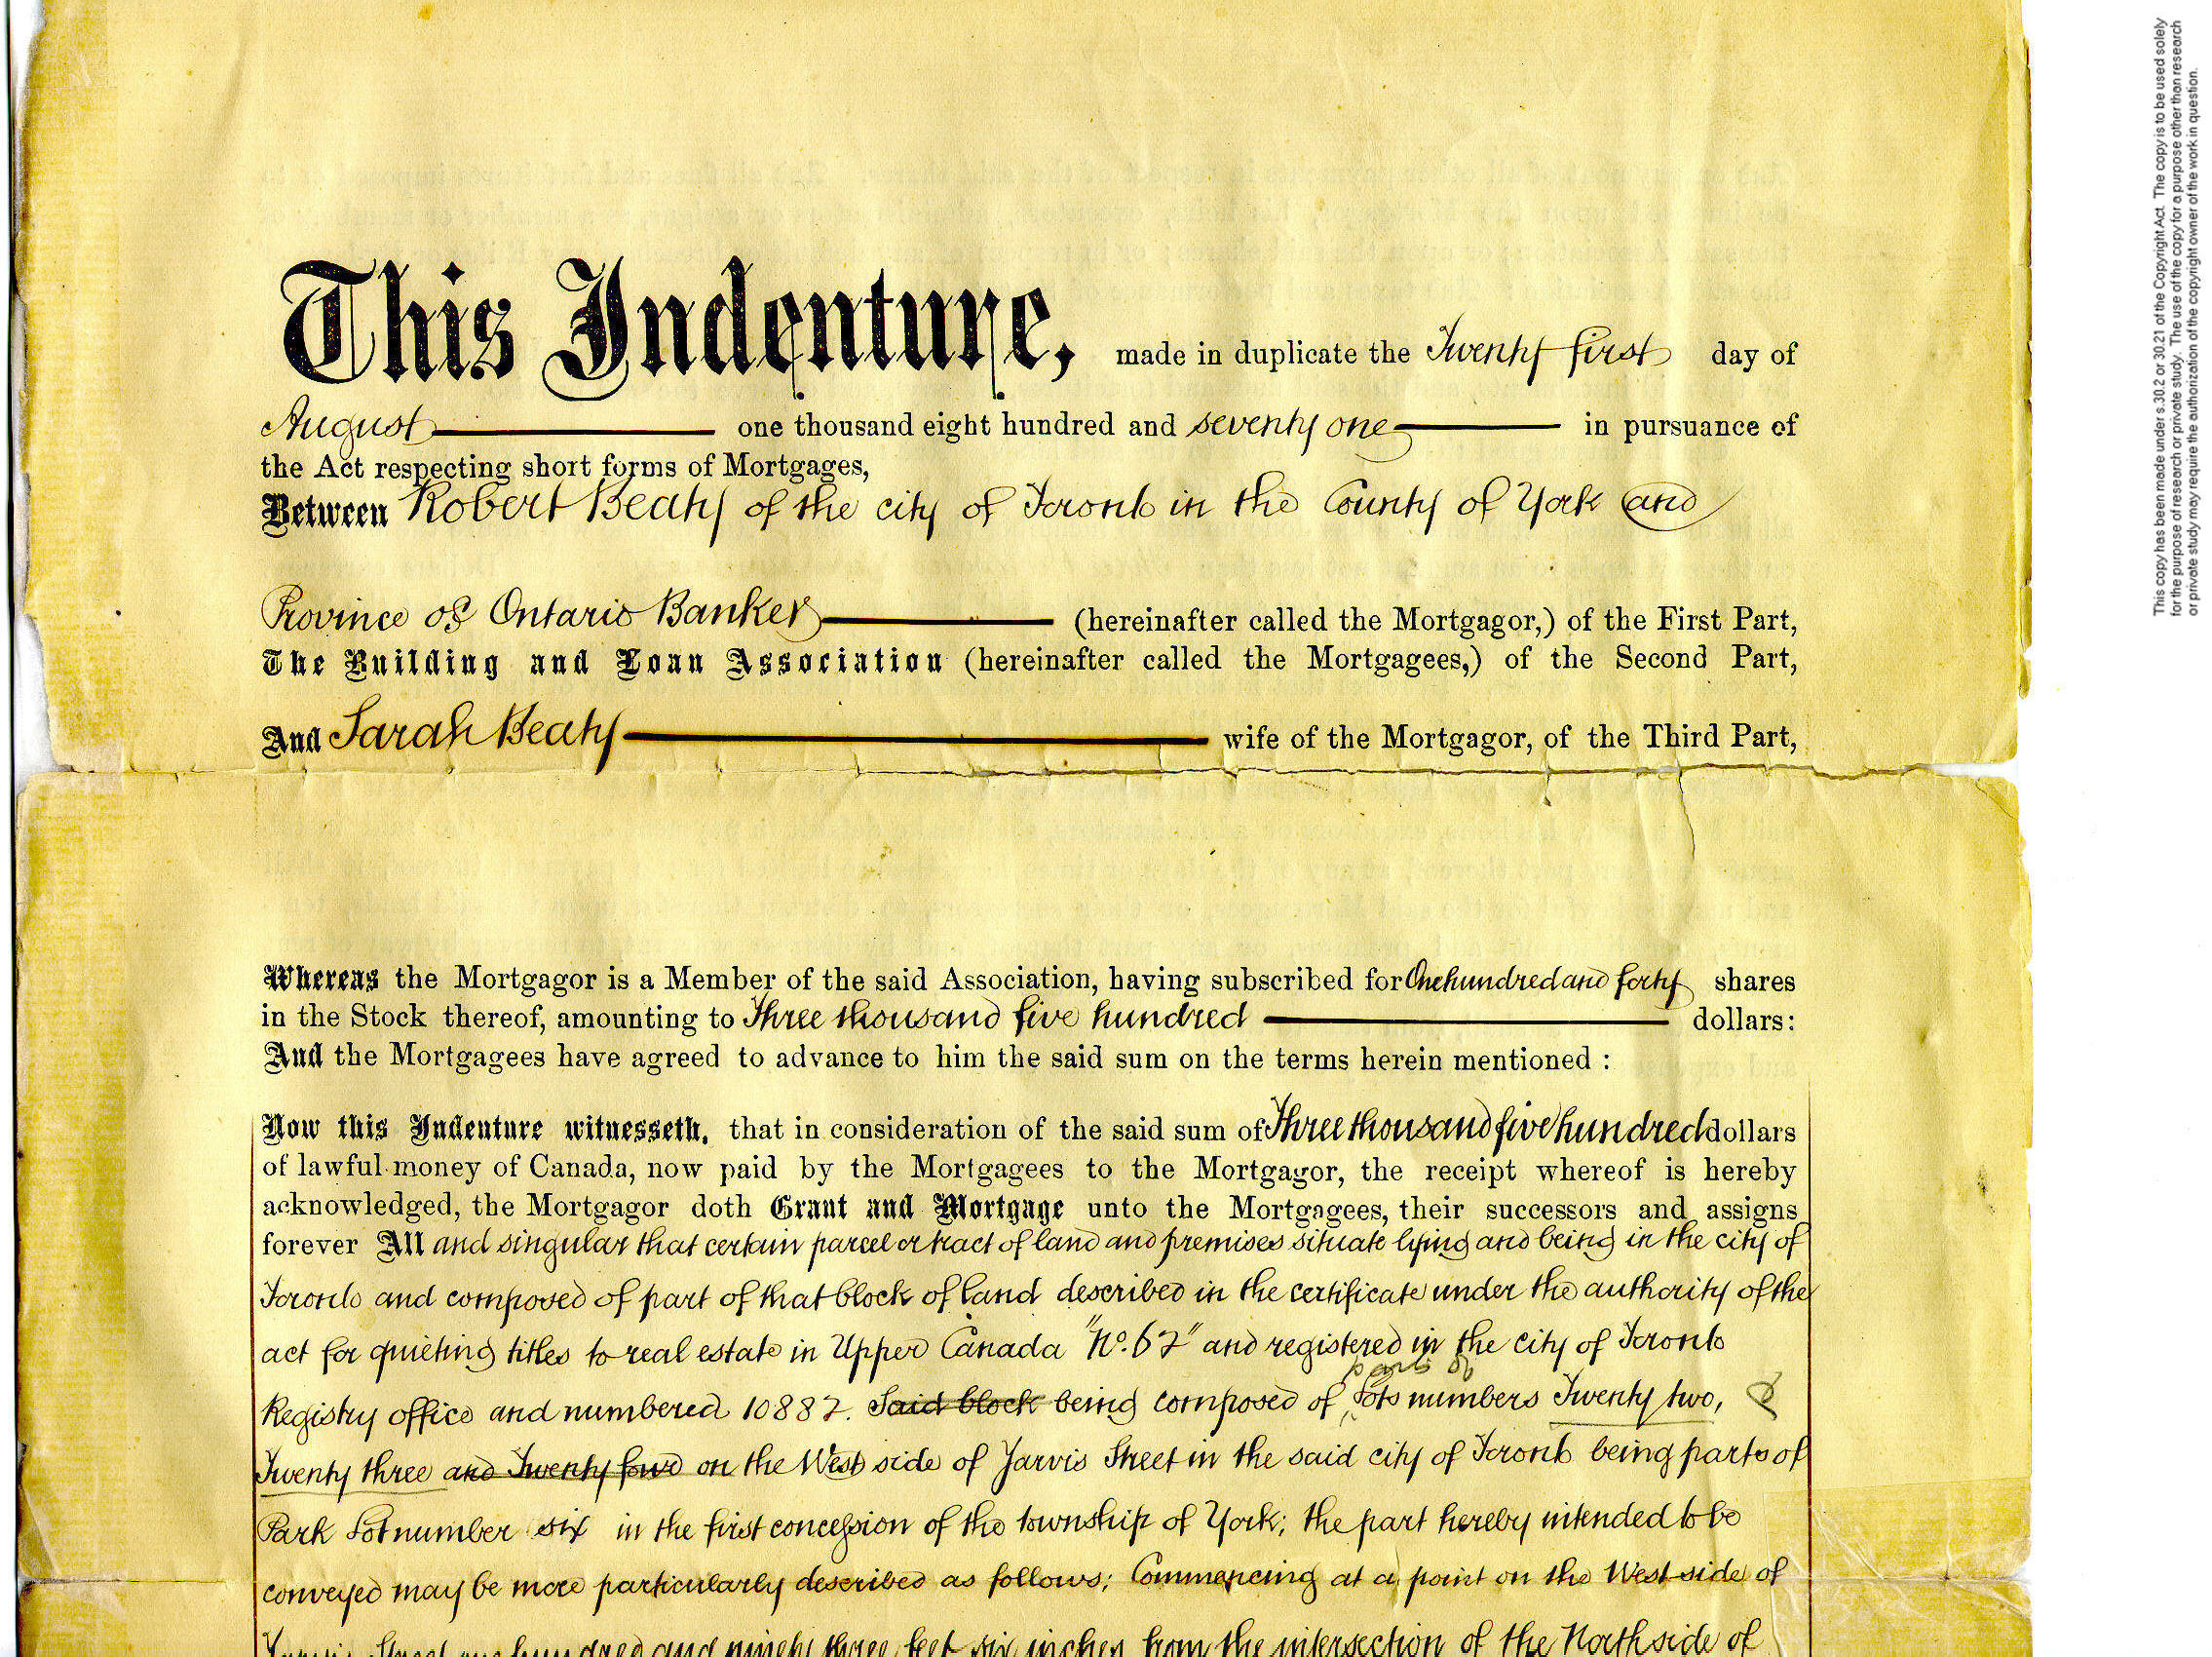 This Indenture, made in duplicate the Twenty first day of
August one thousand eight hundred and seventy one in pursuance of
the Act respecting short forms of Mortgages,
Between Robert Beaty of the city of Toronto in the County of York and
Province of Ontario Banker (hereinafter called the Mortgagor,) of the First Part,
The Building and Loan Association (hereinafter called the Mortgagees,) of the Second Part,
And Sarah Beaty wife of the Mortgagor, of the Third Part,
Whereas the Mortgagor is a Member of the said Association, having subscribed for One hundred and forty shares
in the Stock thereof, amounting to Three thousand five hundred dollars:
And the Mortgagees have agreed to advance to him the said sum on the terms herein mentioned :
Now this Indenture witnesseth, that in consideration of the said sum of Three thousand five hundred dollars
of lawful money of Canada, now paid by the Mortgagees to the Mortgagor, the receipt whereof is hereby
acknowledged, the Mortgagor doth Grant and Mortgage unto the Mortgagees, their successors and assigns
forever All and singular that certain parcel or tract of land and premises situate lying and being in the city of
Toronto and composed of part of that block of land described in the certificate under the authority of the
act for quieting titles to real estate in Upper Canada "No. 62" and registered in the city of Toronto
parts of
Registry office and numbered 10882. Said block being composed of Lots numbers Twenty two, &
Twenty three and Twenty four on the West side of Jarvis Street in the said city of Toronto being parts of
Park Lot number six in the first concession of the township of York; the part hereby intended to be
conveyed may be more particularly described as follows; Commencing at a point on the West side of
Jarvis Street one hundred and ninety three feet six inches from the intersection of the North side of
This copy has been made under s.30.2 or 30.21 of the Copyright Act. The copy is to be used solely
for the purpose of research or private study. The use of the copy for a purpose other than research
or private study may require the authorization of the copyright owner of the work in question.